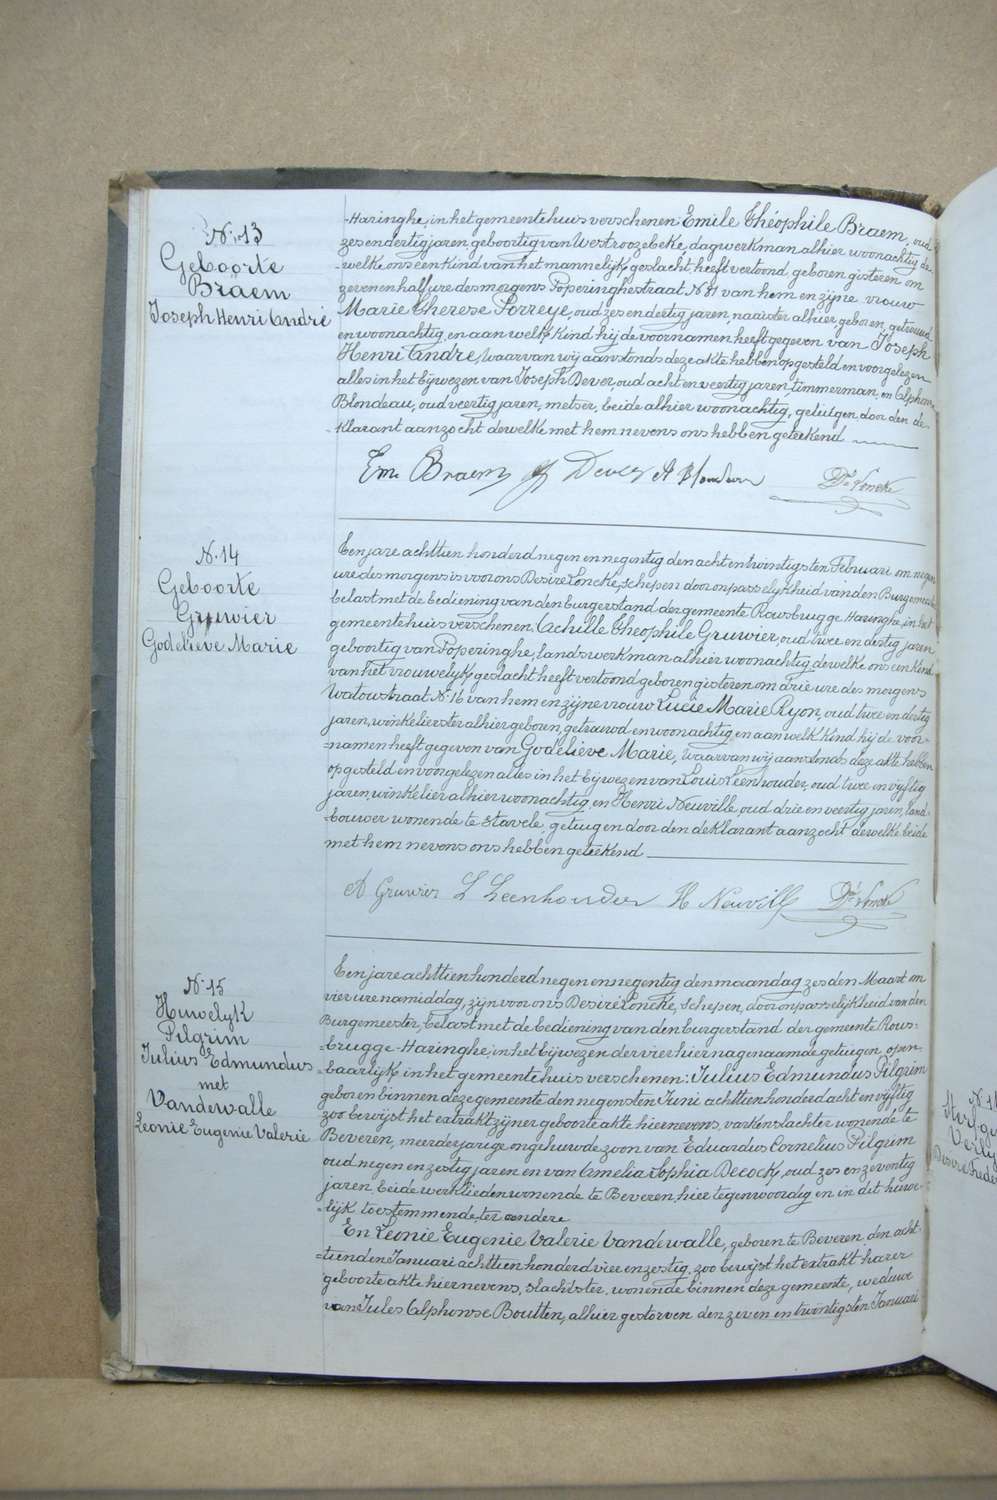 N. 13
Geboorte
Braem
Joseph Henri André
-Haringhe, in het gemeentehuis verschenen: Emile Théophile Braem, oud
zes en dertig jaren, geboortig van Westroozebeke dagwerkman alhier woonachtig de-
-welke ons een kind van het mannelijk geslacht heeft vertoond, geboren gisteren om
zeven en half ure des morgens Poperinghestraat N 81 van hem en zijne vrouw
Marie Therese Porreye, oud zes en dertig jaren, naaister alhier geboren, getrouwd
en woonachtig, en aan welk kind hij de voornamen heeft gegeven van Joseph
Henri André, Waarvan wij aanstonds deze akte hebben opgesteld en voorgelezen
alles in het bijwezen van Joseph Dever, oud acht en veertig jaren, timmerman, en Alphon-
Blondeau, oud veertig jaren, metser, beide alhier woonachtig, getuigen door den de-
-klarant aanzocht dewelke met hem nevens ons hebben geteekend
Em Braem J Dever A Blondeau Dré Loncke
N. 14
Geboorte
Gruwier
Godelieve Marie
Een jare achttien honderd negen en negentig den acht en twintigsten Februari om negen
ure des morgens is voor ons Desiré Loncke, schepen door onpasselijkheid van den Burgemeester
belast met de bediening van den burgerstand der gemeente Rousbrugge-Haringhe, in het
gemeentehuis verschenen: Achille Theophile Gruwier, oud twee en dertig jaren
geboortig van Poperinghe, landswerkman alhier woonachtig, dewelke ons een kind
van het vrouwelijk geslacht heeft vertoond geboren gisteren om drie ure des morgens
Watoustraat N. 16 van hem en zijne vrouw Lucie Marie Ryon, oud twee en dertig
jaren, winkelierster alhier geboren, getrouwd en woonachtig en aan welk kind hij de voor-
-namen heeft gegeven van Godelieve Marie, Waarvan wij aanstonds deze akte hebben
opgesteld en voorgelezen alles in het bijwezen van Louis Leenhouder, oud twee en vijftig
jaren, winkelier alhier woonachtig, en Henri Neuville, oud drie en veertig jaren, land-
-bouwer wonende te Stavele, getuigen door den deklarant aanzocht dewelke beide
met hem nevens ons hebben geteekend
A Gruwier L Leenhouder H Neuville Dré Loncke
N. 15
Huwelyk
Pilgrim
Julius Edmundus
met
Vandewalle
Leonie Eugenie Valerie
Een jare achttien honderd negen en negentig den maandag zes den Maart om
vier ure namiddag, zijn voor ons Desiré Loncke, schepen, door onpasselijkheid van den
Burgemeester, belast met de bediening van den burgerstand der gemeente Rous-
-brugge-Haringhe, in het bijwezen der vier hier nagenaamde getuigen open-
-baarlijk in het gemeentehuis verschenen: Julius Edmundus Pilgrim
geboren binnen deze gemeente den negensten Juni achttien honderd acht en vijftig
zoo bewijst het extrakt zijner geboorte akte hiernevens, varkenslachter wonende te
Beveren, meerderjarige ongehuwde zoon van Eduardus Cornelius Pilgrim
oud negen en zestig jaren en van Amelia Sophia Decock, oud zes en zeventig
jaren, beide werklieden wonende te Beveren, hier tegenwoordig en in dit huwe-
-lijk toestemmende, ter eendere
En Leonie Eugenie Valerie Vandewalle, geboren te Beveren, den acht-
-tienden Januari achttien honderd vier en zestig, zoo bewijst het extrakt harer
geboorte akte hiernevens, slachtster, wonende binnen deze gemeente, weduwe
van Jules Alphonse Boutten, alhier gestorven den zeven en twintigsten Januari